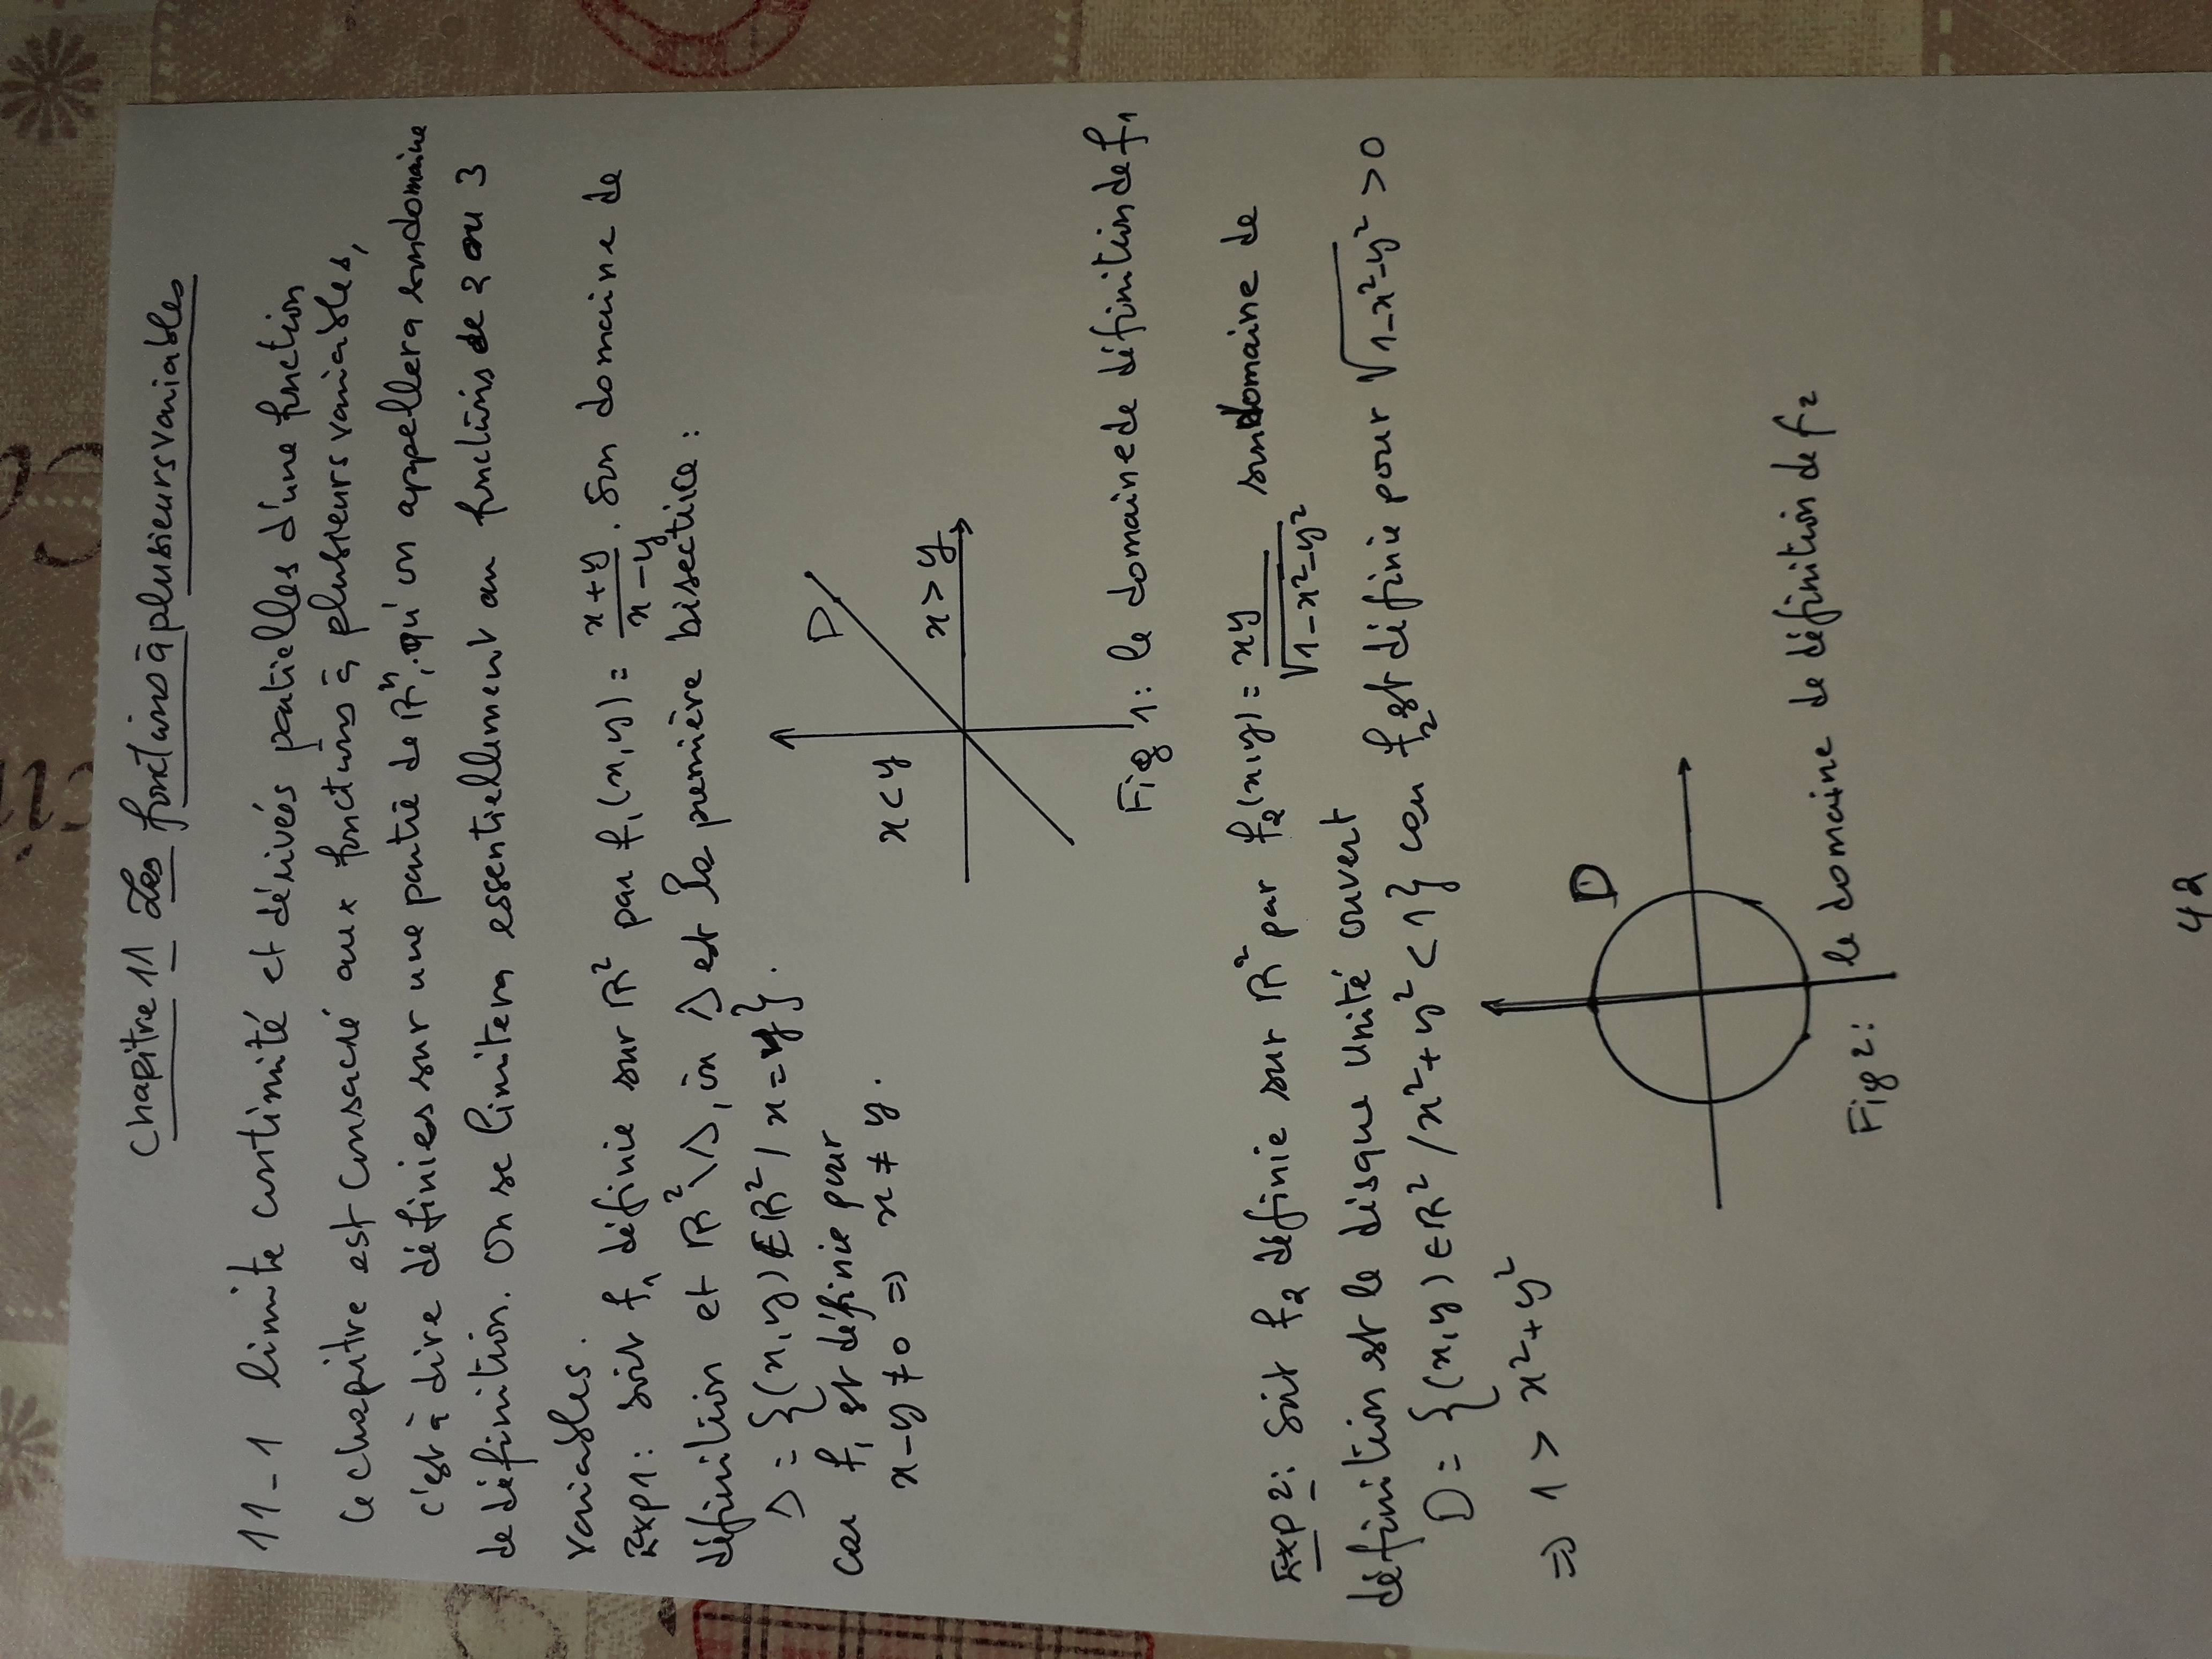 Chapitre 11 Les fonctions à plusieurs variables
11-1 limite continuité et dérivés partielles d'une fonction
Ce chapitre est consacré aux fonctions à plusieurs variables,
c'est à dire définies sur une partie de ℝⁿ, qu'on appellera son domaine
de définition. On se limitera essentiellement au fonctions de 2 ou 3
variables.
Exp1: soit f₁ définie sur ℝ² par f₁(x,y) = (x+y)/(x-y). Son domaine de
définition et ℝ²\Δ, où Δ est la première bisectrice:
Δ = {(x,y) ∈ ℝ² / x = y}.
car f₁ est définie pour
x-y ≠ 0 ⇒ x ≠ y.
D
x < y
x > y
Fig 1: le domaine de définition de f₁
Exp 2: Soit f₂ définie sur ℝ² par f₂(x,y) = xy/√(1-x²-y²) son domaine de
définition est le disque unité ouvert
D = {(x,y) ∈ ℝ² / x²+y² < 1} car f₂ est définie pour √(1-x²-y²) > 0
⇒ 1 > x²+y²
D
Fig 2: le domaine de définition de f₂
42